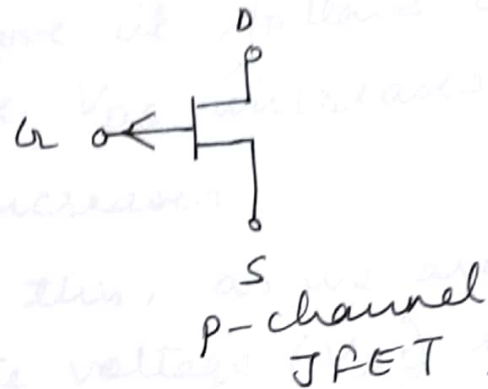 D
G
S
P-channel
JFET